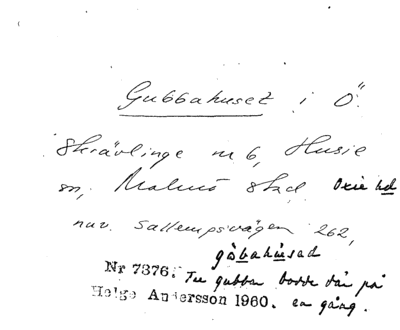 Gubbahuset i Ö.
Skrävlinge nr 6, Husie
sn, Malmö stad Oxie hd
nuv. Sallerupsvägen 262,
gòbahùsad
Nr 7376. Tre gubbar bodde där på
Helge Andersson 1960. en gång.